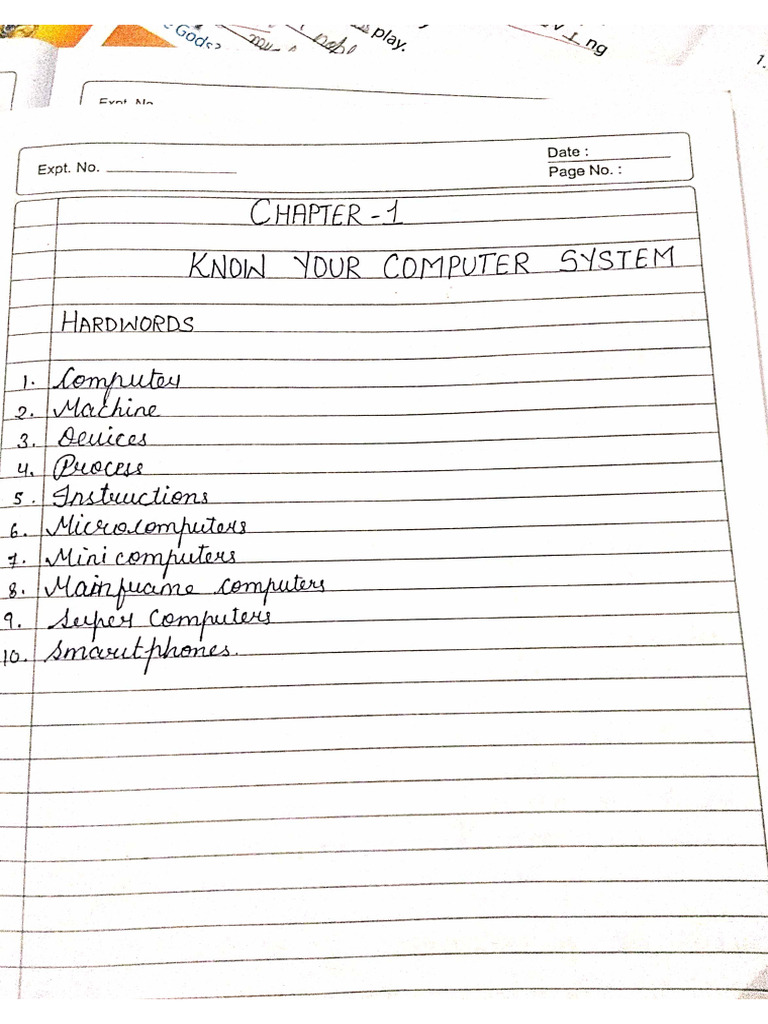 Gods?
play.
ng
1.
Expt. No.
Expt. No.
Date :
Page No. :
CHAPTER-1
KNOW YOUR COMPUTER SYSTEM
HARDWORDS
1. Computer
2. Machine
3. Devices
4. Process
5. Instructions
6. Microcomputers
7. Minicomputers
8. Mainframe computers
9. Super Computers
10. Smartphones.